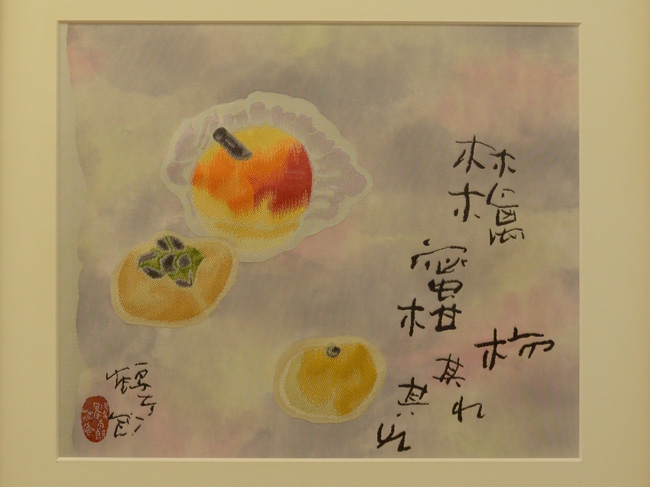 林檎
柿
蜜柑
其れ
其れ